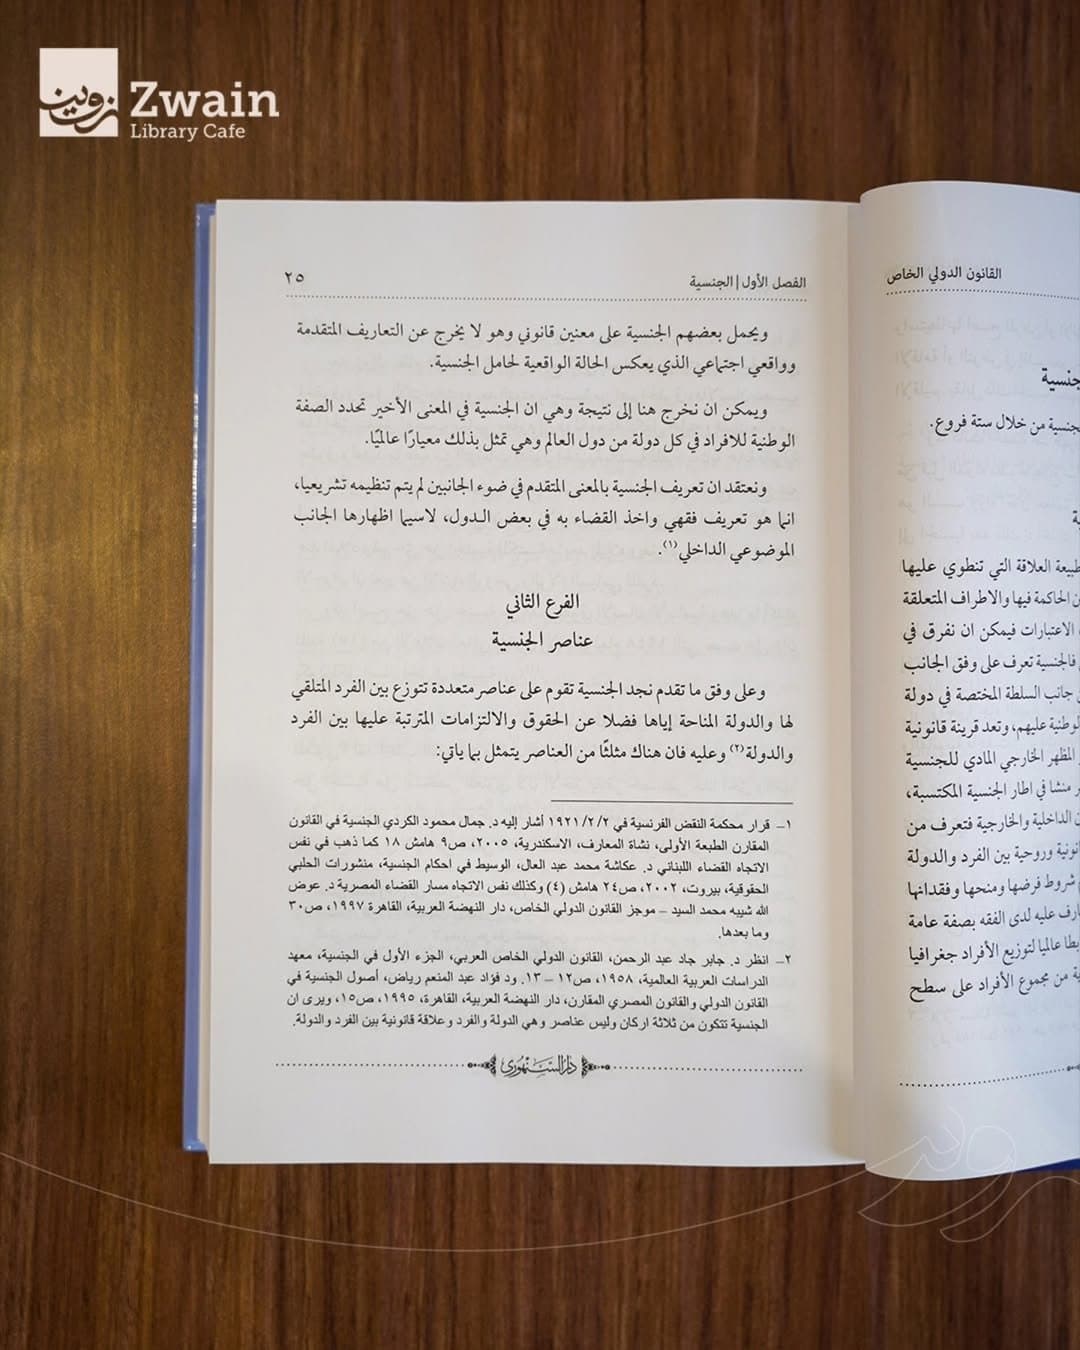 زوين
Zwain
Library Cafe
القانون الدولي الخاص
الجنسية
الجنسية من خلال ستة فروع.
طبيعة العلاقة التي تنطوي عليها
الحاكمة فيها والاطراف المتعلقة
الاعتبارات فيمكن ان نفرق في
فالجنسية تعرف على وفق الجانب
جانب السلطة المختصة في دولة
الوطنية عليهم، وتعد قرينة قانونية
المظهر الخارجي المادي للجنسية
منشا في اطار الجنسية المكتسبة،
الداخلية والخارجية فتعرف من
قانونية وروحية بين الفرد والدولة
شروط فرضها ومنحها وفقدانها
عليه لدى الفقه بصفة عامة
عالميا لتوزيع الأفراد جغرافيا
من مجموع الأفراد على سطح
الفصل الأول | الجنسية ٢٥
ويحمل بعضهم الجنسية على معنين قانوني وهو لا يخرج عن التعاريف المتقدمة
وواقعي اجتماعي الذي يعكس الحالة الواقعية لحامل الجنسية.
ويمكن ان نخرج هنا إلى نتيجة وهي ان الجنسية في المعنى الأخير تحدد الصفة
الوطنية للافراد في كل دولة من دول العالم وهي تمثل بذلك معيارًا عالميًا.
ونعتقد ان تعريف الجنسية بالمعنى المتقدم في ضوء الجانبين لم يتم تنظيمه تشريعيا،
انما هو تعريف فقهي واخذ القضاء به في بعض الدول، لاسيما اظهارها الجانب
الموضوعي الداخلي(١).
الفرع الثاني
عناصر الجنسية
وعلى وفق ما تقدم نجد الجنسية تقوم على عناصر متعددة تتوزع بين الفرد المتلقي
لها والدولة المناحة إياها فضلا عن الحقوق والالتزامات المترتبة عليها بين الفرد
والدولة(٢) وعليه فان هناك مثلثًا من العناصر يتمثل بما ياتي:
١– قرار محكمة النقض الفرنسية في ١٩٢١/٢/٢ أشار إليه د. جمال محمود الكردي الجنسية في القانون
المقارن الطبعة الأولى، نشاة المعارف، الاسكندرية، ٢٠٠٥، ص٩ هامش ١٨ كما ذهب في نفس
الاتجاه القضاء اللبناني د. عكاشة محمد عبد العال، الوسيط في احكام الجنسية، منشورات الحلبي
الحقوقية، بيروت، ٢٠٠٢، ص٢٤ هامش (٤) وكذلك نفس الاتجاه مسار القضاء المصرية د. عوض
الله شيبه محمد السيد – موجز القانون الدولي الخاص، دار النهضة العربية، القاهرة ١٩٩٧، ص٣٠
وما بعدها.
٢– انظر د. جابر جاد عبد الرحمن، القانون الدولي الخاص العربي، الجزء الأول في الجنسية، معهد
الدراسات العربية العالمية، ١٩٥٨، ص١٢ – ١٣. ود فؤاد عبد المنعم رياض، أصول الجنسية في
القانون الدولي والقانون المصري المقارن، دار النهضة العربية، القاهرة، ١٩٩٥، ص١٥، ويرى ان
الجنسية تتكون من ثلاثة اركان وليس عناصر وهي الدولة والفرد وعلاقة قانونية بين الفرد والدولة.
دار السنهوري